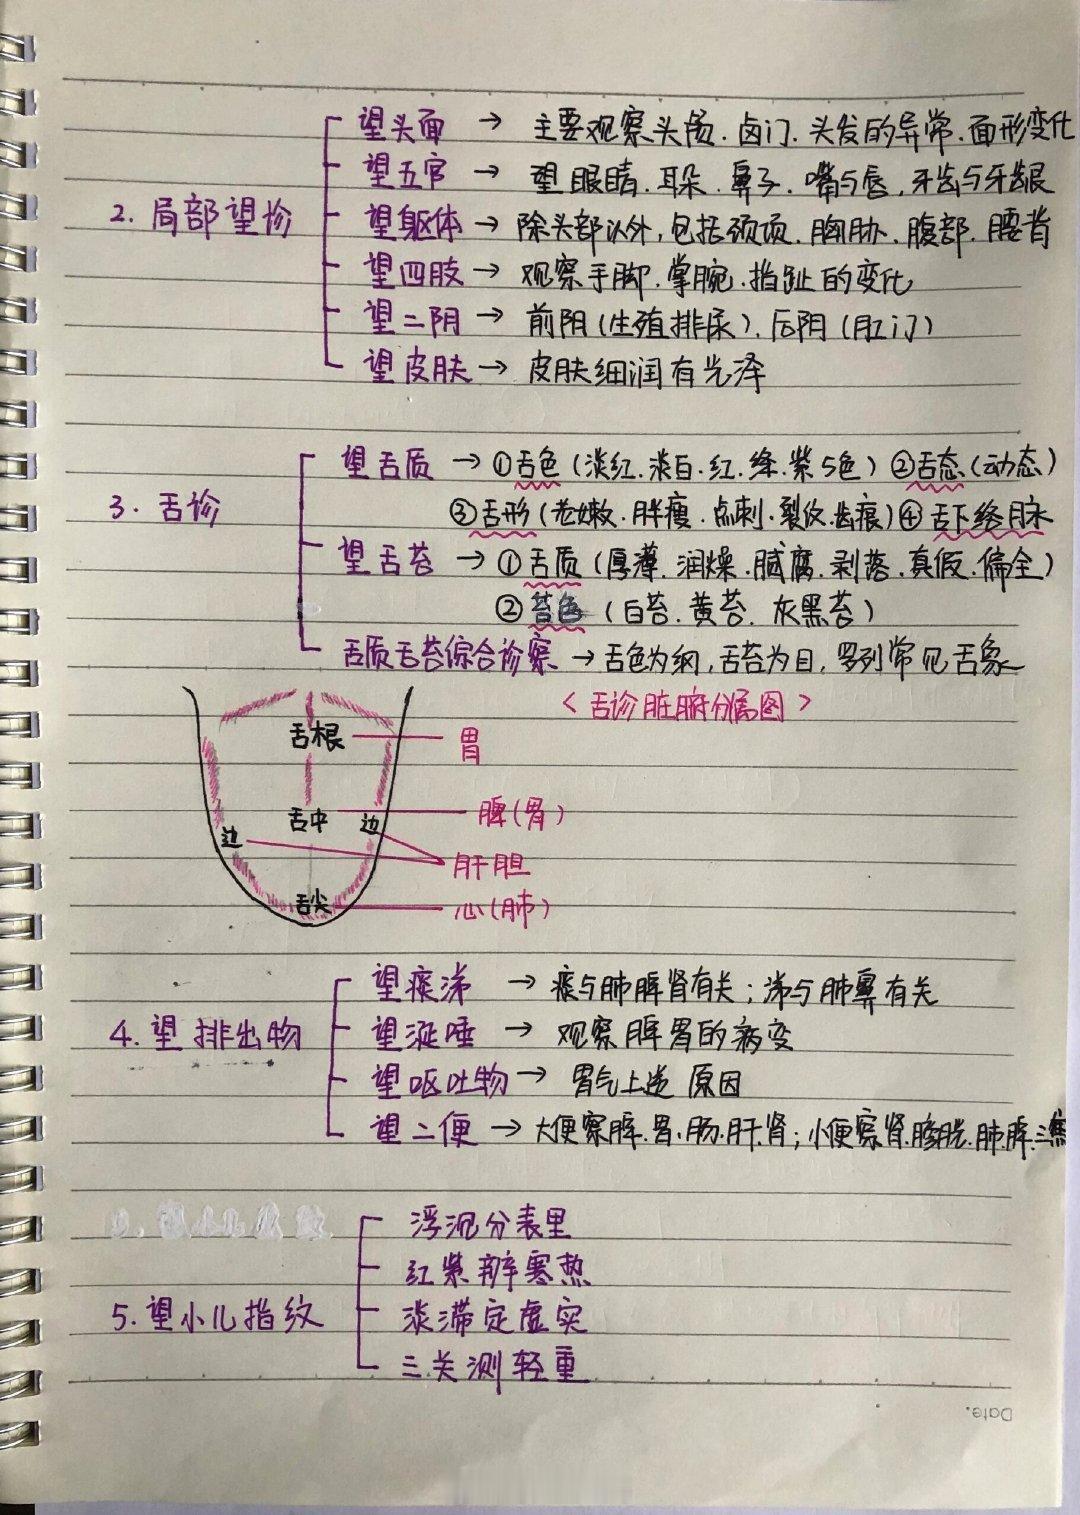 2. 局部望诊
望头面 → 主要观察头颅、囟门、头发的异常、面形变化
望五官 → 望眼睛、耳朵、鼻子、嘴与唇、牙齿与牙龈
望躯体 → 除头部以外,包括颈项、胸胁、腹部、腰背
望四肢 → 观察手脚、掌腕、指趾的变化
望二阴 → 前阴(生殖排尿)、后阴(肛门)
望皮肤 → 皮肤细润有光泽
3. 舌诊
望舌质 → ①舌色(淡红、淡白、红、绛、紫5色) ②舌态(动态)
③舌形(老嫩、胖瘦、点刺、裂纹、齿痕) ④舌下络脉
望舌苔 → ①舌质(厚薄、润燥、腻腐、剥落、真假、偏全)
②苔色(白苔、黄苔、灰黑苔)
舌质舌苔综合诊察 → 舌色为纲,舌苔为目,罗列常见舌象
<舌诊脏腑分属图>
舌根 胃
舌中 脾(胃)
边 边 肝胆
舌尖 心(肺)
4. 望排出物
望痰涕 → 痰与肺脾肾有关;涕与肺鼻有关
望涎唾 → 观察脾胃的病变
望呕吐物 → 胃气上逆原因
望二便 → 大便察脾、胃、肠、肝、肾;小便察肾、膀胱、肺、脾、三焦
5. 望小儿指纹
浮沉分表里
红紫辨寒热
淡滞定虚实
三关测轻重
Date.